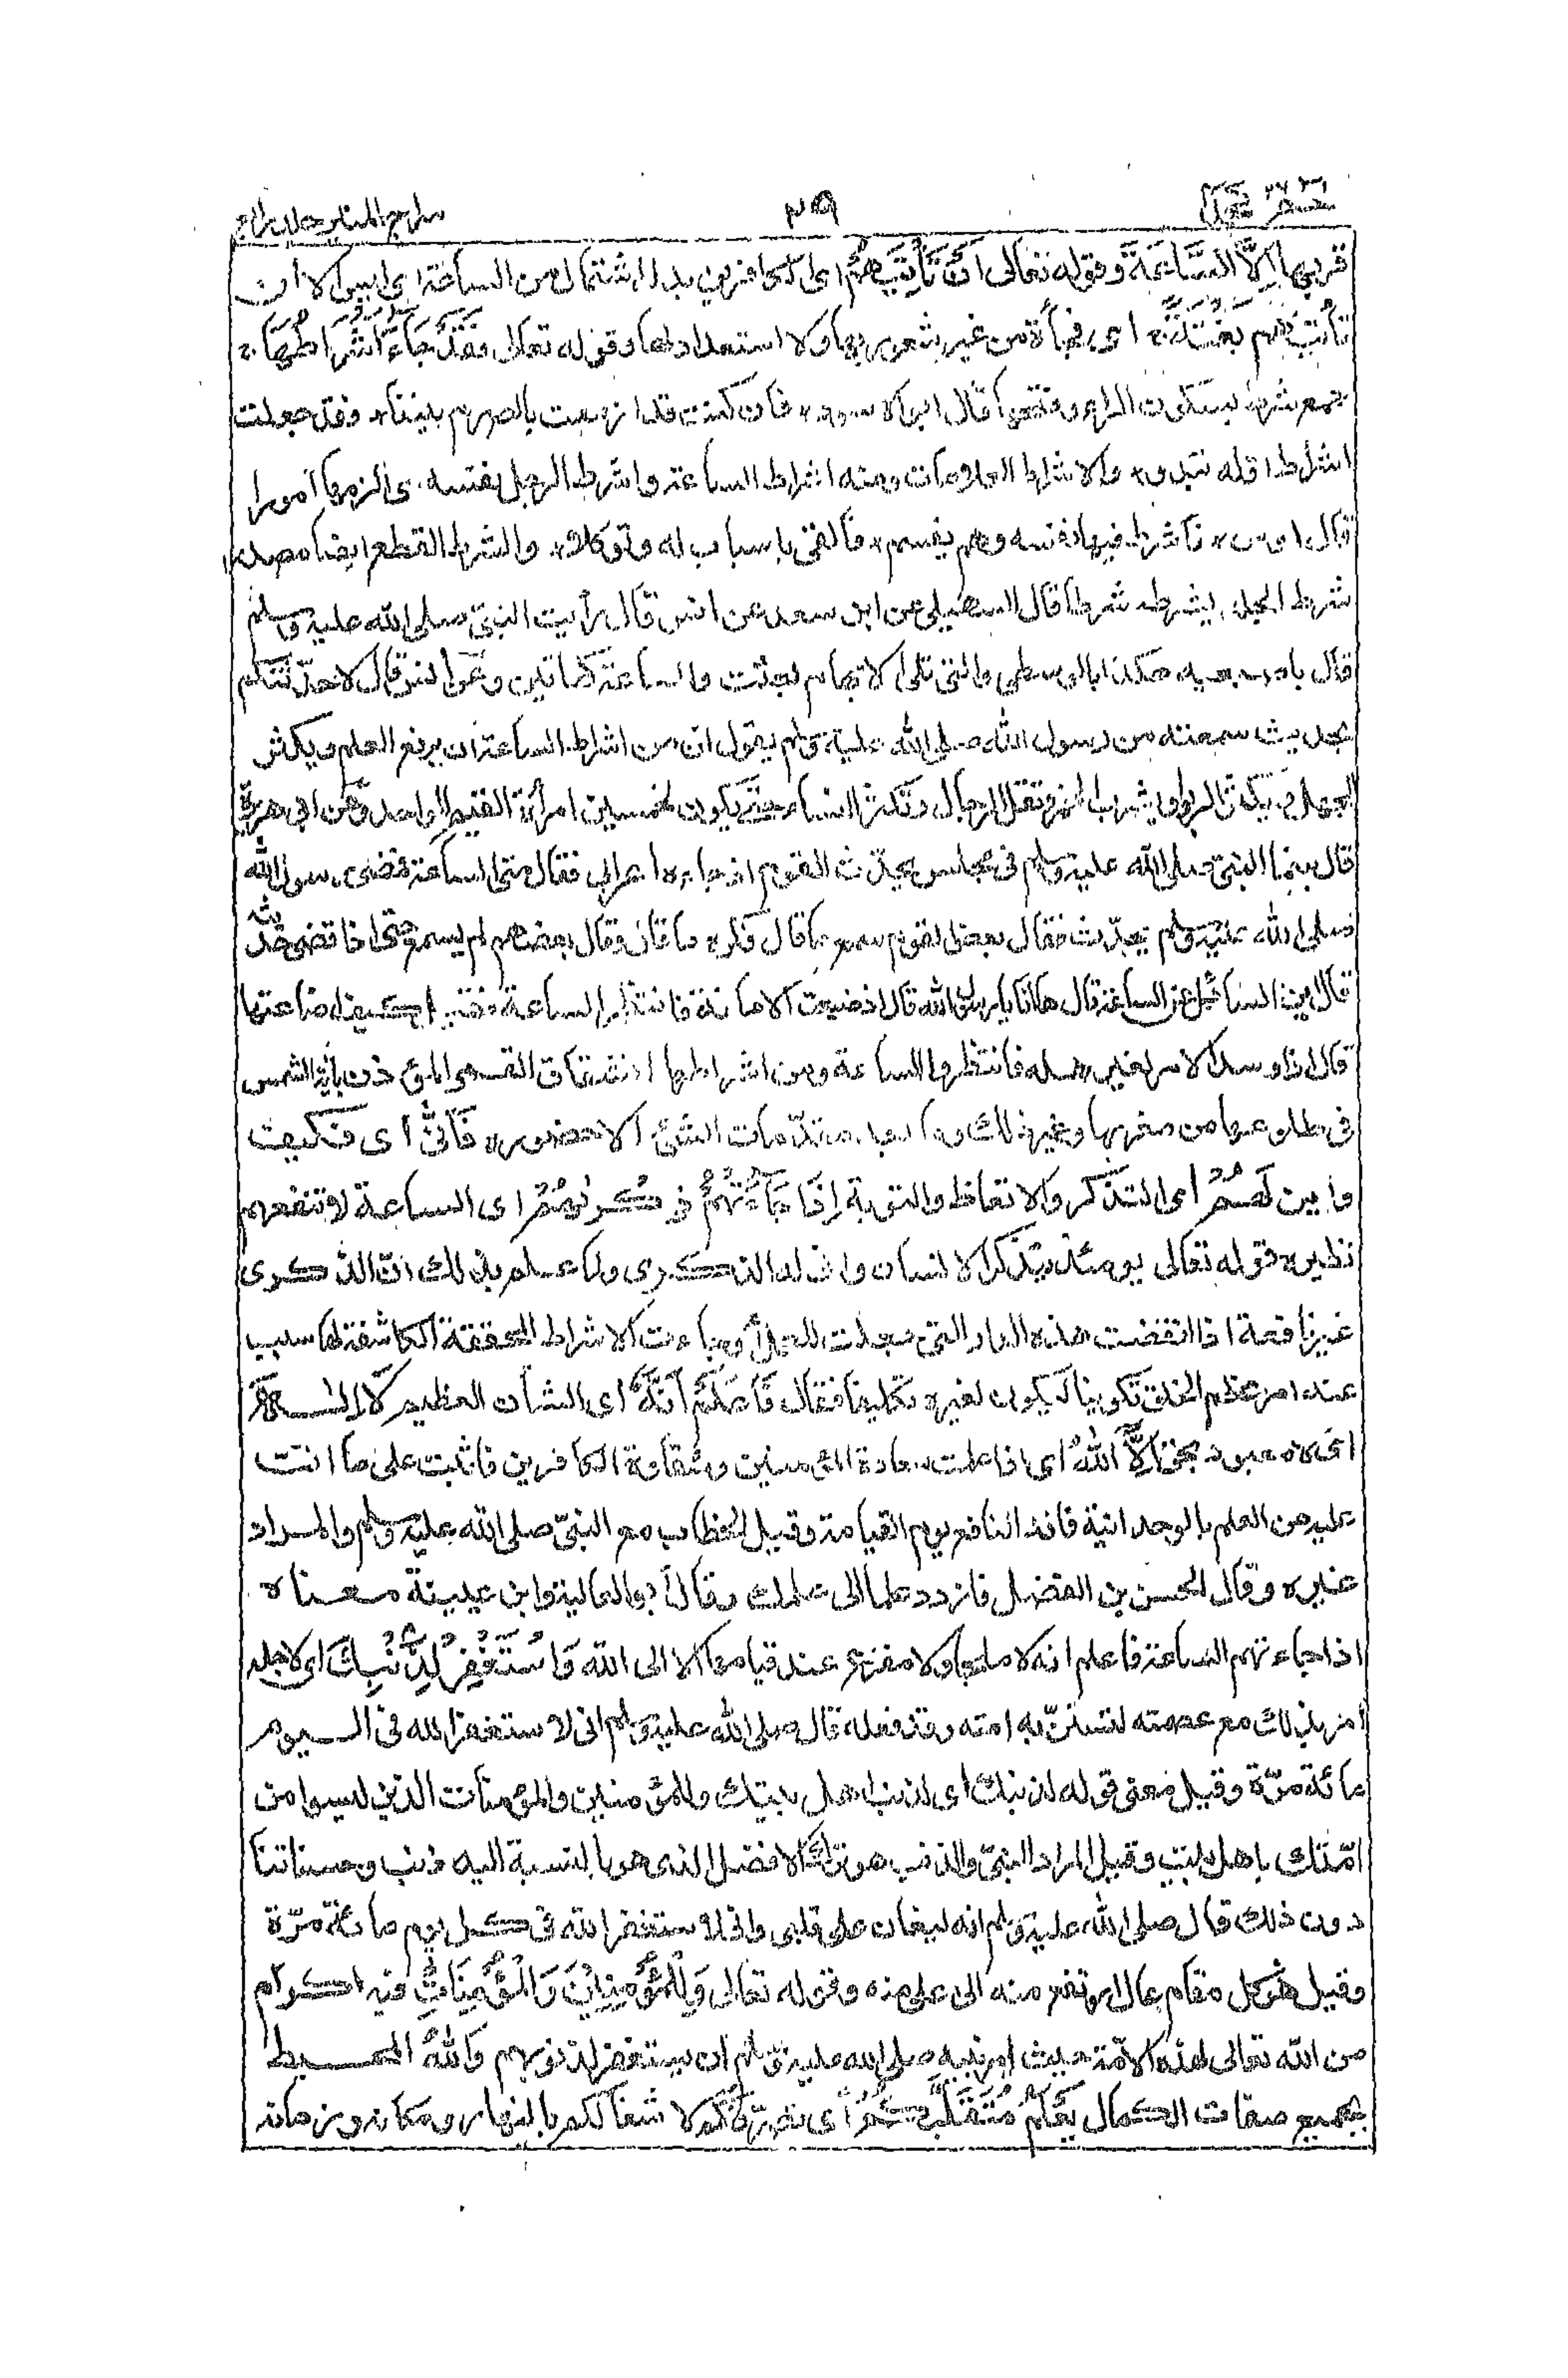 قربها إلا الساعة وقوله تعالى أن تأتيهم أى كى بدل اشتمال من الساعة أى ليس الا أن
تأتيهم بغتة أى فجأة من غير شعور بها ولا استعداد لها وقوله تعالى فقد جاء أشراطها
جمع شرط بسكون الراء وفتحها قال ابو الاسود فان كنت قد ازمعت بالصرم بيننا وفقد جعلت
اشراط اوله تبدو والاشراط العلامات ومنه اشراط الساعة واشرط الرجل نفسه اى الزمها أمورا
قال اوس فأشرط فيها نفسه وهو معصم فألقى باسباب له وتوكلا والشرط القطع ايضا مصدر
شرط الجلد يشرطه شرطا قال السهيلى عن ابن سعد عن انس قال رأيت النبى صلى الله عليه وسلم
قال باصبعيه هكذا بالوسطى والتى تلى الابهام بعثت والساعة كهاتين وعن انس قال لاحدثنكم
بحديث سمعته من رسول الله صلى الله عليه وسلم يقول ان من اشراط الساعة ان يرفع العلم ويكثر
الجهل ويكثر الزنا ويشرب الخمر وتقل الرجال وتكثر النساء حتى يكون لخمسين امرأة القيم الواحد وعن ابى هريرة
قال بينما النبى صلى الله عليه وسلم فى مجلس يحدث القوم اذ جاءه اعرابى فقال متى الساعة فمضى رسول الله
صلى الله عليه وسلم يحدث فقال بعض القوم سمع ما قال فكره ما قال وقال بعضهم لم يسمع حتى اذا قضى حديثه
قال اين السائل عن الساعة قال ها انا يا رسول الله قال اذا ضيعت الامانة فانتظر الساعة فقال كيف اضاعتها
قال اذا وسد الامر لغير اهله فانتظروا الساعة ومن اشراطها انشقاق القمر المؤذن بآية الشمس
فى طلوعها من مغربها وغير ذلك وما بعد مقدمات الشئ الا حضوره فأنى أى فكيف
واين لهم أى التذكر والاتعاظ والتوبة إذا جاءتهم ذكرىهم اى الساعة لا تنفعهم
نظيره قوله تعالى يومئذ يتذكر الانسان وانى له الذكرى ولما علم بذلك ان الذكرى
غير نافعة اذا انقضت هذه الدار التى جعلت للعمل وجاءت الاشراط المحققة الكاشفة لها سبب
عنه امر اعظم الخلق تكوينا ليكون لغيره تكليفا فقال فاعلم أنه أى الشأن العظيم لا إله
اى لا معبود بحق إلا الله أى اذا علمت سعادة المؤمنين وشقاوة الكافرين فاثبت على ما انت
عليه من العلم بالوحدانية فانه النافع يوم القيامة وقيل الخطاب مع النبى صلى الله عليه وسلم والمراد
غيره وقال الحسن بن الفضل فازدد علما الى علمك وقال أبو العالية وابن عيينة معناه
اذا جاءتهم الساعة فاعلم انه لا ملجأ ولا مفزع عند قيامها الا الى الله واستغفر لذنبك اى لاجله
أمر بذلك مع عصمته لتستن به امته وقد فعله قال صلى الله عليه وسلم انى لاستغفر الله فى اليوم
مائة مرة وقيل معنى قوله لذنبك اى لذنب اهل بيتك وللمؤمنين والمؤمنات الذين ليسوا من
امتك باهل بيت وقيل المراد النبى والذنب هو ترك الافضل الذى هو بالنسبة اليه ذنب وحسناتنا
دون ذلك قال صلى الله عليه وسلم انه ليغان على قلبى وانى لاستغفر الله فى كل يوم مائة مرة
وقيل هو كل مقام عال ارتفع منه الى اعلى منه وقوله تعالى وللمؤمنين والمؤمنات فيه اكرام
من الله تعالى لهذه الامة حيث امر نبيه صلى الله عليه وسلم ان يستغفر لذنوبهم والله المحيط
بجميع صفات الكمال يعلم متقلبكم أى تصرفكم لاشغالكم بالنهار ومكانه وزمانه